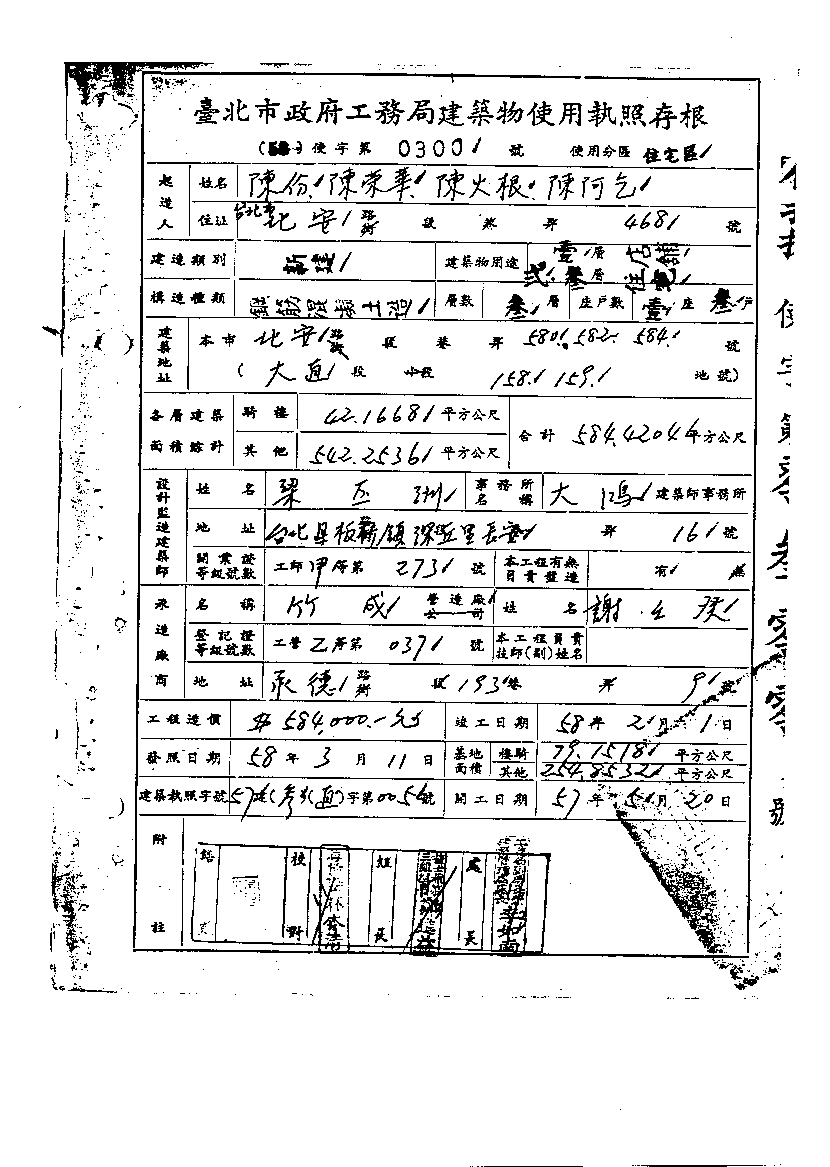 臺北市政府工務局建築物使用執照存根
使字第 0300 號 使用分區 住宅區
起造人 姓名 陳份 陳榮華 陳火根 陳阿乞
住址 台北市北安路街 段 巷 弄 468 號
建造類別 新建 建築物用途 壹層店舖 貳、叁層住宅
構造種類 鋼筋混凝土造 層數 叁層 座戶數 壹座 叁戶
建築地址 本市 北安路街 段巷 弄 580.582.584. 號
(大直段 小段 158. 159. 地號)
各層建築面積綜計 騎樓 42.1668 平方公尺 合計 584.4204 平方公尺
其他 542.2536 平方公尺
設計監造建築師 姓名 梁 事務所名稱 大鴻 建築師事務所
地址 台北縣板橋鎮深丘里長安 弄 16 號
開業證等級號數 工師甲等第 273 號 本工程有無負責監造 有 無
承造廠商 名稱 竹成 營造廠公司 姓名 謝
登記證等級號數 工營乙等第 037 號 本工程負責技師(副)姓名
地址 承德路街 段 193 巷 弄 9 號
工程造價 $584,000.-元 竣工日期 58年 2月 1日
發照日期 58年 3月 11日 基地面積 樓騎 79.1518 平方公尺
其他 254.8532 平方公尺
建築執照字號 57建(參)(直)字第0054號 開工日期 57年 5月 20日
附註
校對 組長 處長